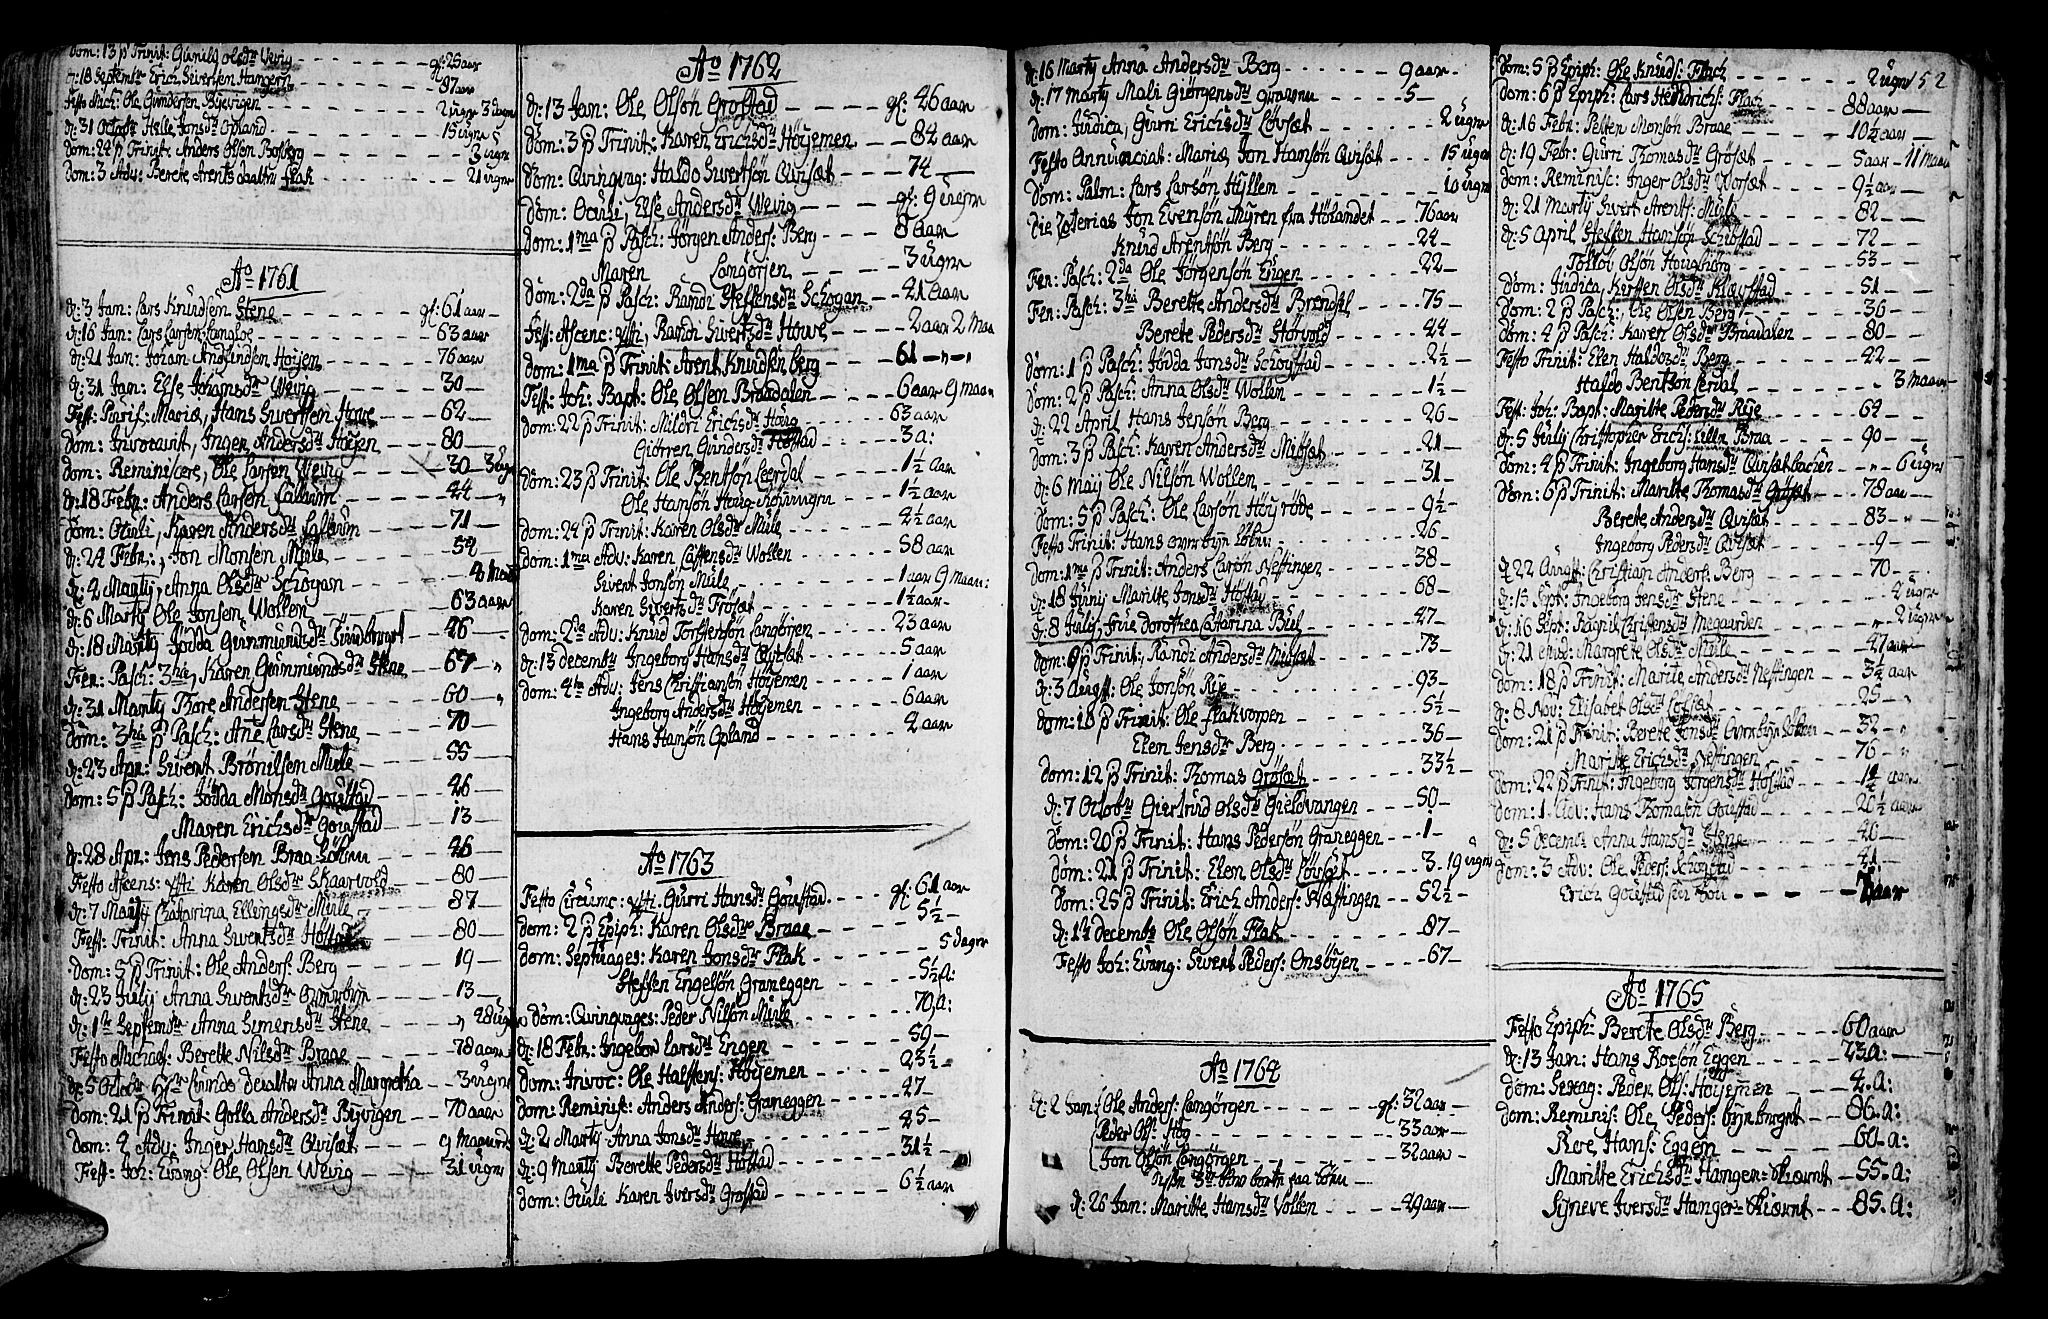 dom: 13 p Trinit: Gunild Olsdr Wevig - - - gl: 25 aar
d: 18 Septembr Erich Sivertsen Hangern - - - 87 aar
Festo Mich: Ole Gundersen Byevigen - - - 2 ugr 3 dage
d: 31 Octobr Helle Jonsdr Opland - - - 15 ugr
dom: 24 p Trinit: Anders Olsen Bosberg - - - 3 ugr
dom: 3 Adv: Berete Arents daatter Flak - - - 21 ugr
Ao 1761
d: 3 Jan: Lars Knudsen Stene - - - gl: 61 aar
d: 16 Jan: Lars Larsen Langloe - - - 63 aar
d: 21 Jan: Johan Høyem - - - 76 aar
d: 31 Jan: Else Johansdr Wevig - - - 30 —
Fest: Purif: Mariæ, Hans Sivertsen Howe - - - 62 —
dom: Invocavit, Inger Andersdr Høyen - - - 80 —
dom: Reminiscere, Ole Larsen Wevig - - - 30 — 3 ugr
d: 18 Febr: Anders Larsen Saltuum - - - 44 —
dom: Oculi, Karen Andersdr Saltuum - - - 71 —
d: 24 Febr:, Jon Monsen Mule - - - 54 —
d: 2 Martij, Anna Olsdr Schogan - - - 4 
d: 6 Martij Ole Jonsen Wollem - - - 63 aar
d: 18 Martij Jødda Gunmundsdr - - - 46 —
Fer: Pasch: 3tia, Karen Gunmundsdr Stene - - - 67 —
d: 31 Martij Tore Andersen Stene - - - 60 —
dom: 3tia p Pasch: Ane Larsdr Stene - - - 70
d: 23 Apr: Sivert Brønilsen Mule - - - 55 —
dom: 5 p Pasch: Jødda Monsdr Goustad - - - 26
Maren Erichsdr Goustad - - - 13 —
d: 28 Apr: Jens Pedersen Braa - - - 46
Festo Ascens: Xsti Karen Olsdr Skaarvold - - - 80 —
d: 7 Catarina Ellingsdr Mule - - - 87 —
Fest: Trinit: Anna Sivertsdr Høstad - - - 80 —
dom: 5 p Trinit: Ole Anders: Berg - - - 19
d: 23 Julij Anna Sivertsdr - - - 13 —
d: 1ste Septembr Anna Simensdr Stene - - - 28 ugr
Festo Michael: Berette Nilsdr Braae - - - 78 aar
d: 5 Octobr Hr: Lunds Anna Margretha - - - 3 ugr
dom: 21 p Trinit: Golla Andersdr Byevigen - - - 70 aar
dom: 2 Adv: Inger Hansdr Qvisæt - - - 9
Fest: Joh: Evang: Ole Olsen Wevig - - - 31 ugr
Ao 1762
d: 13 Jan: Ole Olsøn Grostad - - - gl: 46 aar
dom: 3 p Trinit: Karen Erichsdr Høyemen - - - 84 aar
dom: Qvinqvag: Haldo Sivertsøn Qvisæt - - - 74 —
dom: Oculi, Else Andersdr Wevig - - - gl: 9 ugr
dom: 1ma p Pasch: Jørgen Anders: Berg - - - 8 aar
Maren Langørjen - - - 3 ugr
dom: 2da p Pasch: Randi Steffensdr Schogan - - - 41 aar
Fest: Ascenc: Xsti, Sivertsdr Howe - - - 2 aar 2 Maa
dom: 1ma p Trinit: Arent Knudsen Berg - - - 61 —
Fest: Joh: Bapt: Ole Olsen Braadalen - - - 6 aar 9 Maan
dom: 22 p Trinit: Mildri Erichsdr Houg - - - 63 aar
Giørren Gundersdr Høstad - - - 3 a:
dom: 23 p Trinit: Ole Bentsøn Leerdal - - - 1½ aar
Ole Hansøn Houg - - - 1½ aar
dom: 24 p Trinit: Karen Olsdr Mule - - - 4½ aar
dom: 1ma Adv: Karen Wollen - - - 58 aar
Sivert Jonsøn Mule - - - 1 aar 9 maan:
Karen Sivertsdr Frøsæt - - - 1½ aar
dom: 2da Adv: Knud Torstensøn Langørjen - - - 23 aar
d: 13 decembr Ingeborg Hansdr Qvisæt - - - 5 aar
dom: 4ta Adv: Jens Christiansøn Høyemen - - - 1 aar
Ingeborg Andersdr Høyemen - - - 6 aar
Hans Hansøn Opland - - - 2 aar
Ao 1763
Festo Circumc: Xsti: Gurri Hansdr Goustad - - - gl: 61 aar
dom: 2 p Epiph: Karen Olsdr Braae - - - 5½ —
dom: Septuages: Karen Jonsdr Flak - - - 5 dage
Steffen Engelsøn Graneggen - - - 5½ a:
dom: Qvinqvages: Peder Nilsøn Mule - - - 70, a:
d: 18 Febr: Ingebor Larsdr Engen - - - 59 —
dom: Invoc: Ole Halstens: Høyemen - - - 23½ —
dom: Reminisc: Anders Anders: Graneggen - - - 47 —
d: 2 Martij Anna Jonsdr Howe - - - 45 —
d: 9 Martij Berette Pedersdr Høstad - - - 31½ —
dom: Oculi Karen Iversdr Grostad - - - 6½ aar
d: 16 Martij Anna Andersdr Berg - - - 9 aar
d: 17 Martij Mali Giørgensdr - - - 5 —
dom: Judica, Gurri Erichsdr Løvsæt - - - 2 ugr
Festo Annunciat: Mariæ Jon Hansøn Qvisæt - - - 15 ugr
dom: Palm: Lars Larsøn Hyllen - - - 10 ugr
Jon Evensøn Myren fra Hølandet - - - 76 aar
Knud Arentsøn Berg - - - 24 —
Fer: Pasch: 2da Ole Jørgensøn Engen - - - 22 —
Fer: Pasch: 3tia Berette Andersdr Brendsil - - - 75 —
Berete Pedersdr Skorvold - - - 44 —
dom: 1 p Pasch: Jødda Jonsdr Schoystad - - - 2½ —
dom: 2 p Pasch: Anna Olsdr Wollem - - - 1½ —
d: 22 April Hans Jensøn Berg - - - 26 —
dom: 3 p Pasch: Karen Andersdr Miøsæt - - - 21 —
d: 6 Maij Ole Nilsøn Wollem - - - 31 —
dom: 5 p Pasch: Ole Larsøn Høyrøde - - - 9½ —
Festo Trinit: Hans - - - 26 —
dom: 1ma p Trinit: Anders Larsøn Nestingen - - - 38 —
d: 18 Junij Maritte Jonsdr Høstad - - - 68 —
d: 8 Julij, Frue Dorothea Catarina Biel - - - 47 —
dom: 6 p Trinit: Randi Andersdr Miøsæt - - - 73 —
d: 3 Augst: Ole Jonsøn Rye - - - 93 —
dom: 10 p Trinit: Ole Flakvorpen - - - 5½ —
Elen Jensdr Berg - - - 36 —
dom: 12 p Trinit: Thomas Grøsæt - - - 33½ —
d: 7 Octobr Giertrud Olsdr Gieldvangen - - - 50 —
dom: 20 p Trinit: Hans Pedersøn Graneggen - - - 1 —
dom: 21 p Trinit: Elen Olsdr Løvsæt - - - 3. 19 ugr
dom: 25 p Trinit: Erich Anders: Nestingen - - - 52½ —
d: 14 decembr Ole Olsøn Flak - - - 87 —
Festo Joh: Evang: Sivert Peders: Onsøyen - - - 67 —
Ao 1764
d: 2 Jan: Ole Anders: Langørgen - - - gl: 32 aar
Peder Ols: Høg - - - 33 aar
Jon Olsøn Langørgen - - - 32 aar
disse 3de blev borte paa
d: 26 Jan: Maritte Hansdr Vollen - - - 49 aar
dom: 5 p Epiph: Ole Knuds: Flach - - - 2 ugr 52
dom: 6 p Epiph: Lars Heindrichs: Flach - - - 88 aar
d: 16 Febr: Petter Monsøn Braae - - - 10½ aar
d: 19 Febr: Gurri Thomasdr Grøsæt - - - 5 aar 11 maan
dom: Reminisc: Inger Olsdr Worsæt - - - 9½ aar
d: 21 Martij Sivert Arents: Mule - - - 82 —
d: 5 April Steffen Hansøn Schiøstad - - - 72 —
Tollov Olsøn - - - 53 —
dom: Judica, Kirsten Olsdr Klævstad - - - 51 —
dom: 2 p Pasch: Ole Olsen Berg - - - 36 —
dom: 4 p Pasch: Karen Olsdr Braadalen - - - 80 —
Festo Trinit: Elen Haldosdr Berg - - - 42 —
Haldo Bentsøn Lerdal - - - 3 maan
Fest: Joh: Bapt: Maritte Pedersdr Rye - - - 64 —
d: 5 Julij Christopher Erichs: Lille Braa - - - 90 —
dom: 4 p Trinit: Ingeborg Hansdr Qvisætbachen - - - 6 ugr
dom: 6 p Trinit: Maritte Thomasdr Grøsæt - - - 78 aar
Berete Andersdr Qvisæt - - - 83 —
Ingeborg Pedersdr Qvisæt - - - 9 —
d: 22 Augst: Christian Anders: Berg - - - 70 —
d: 13 Sept: Ingeborg Jensdr Stene - - - 2 ugr
d: 16 Sept: Ragnil Christensdr Megaarden - - - 2 ugr
d: 21 Margrete Olsdr Mule - - - 47 aar
dom: 18 p Trinit: Marite Andersdr Nestingen - - - 3½ aar
d: 8 Nov: Elisabet Olsdr Løvsæt - - - 25 —
dom: 21 p Trinit: Berete Jonsdr - - - 32 —
Maritte Erichsdr Nestingen - - - 76 —
dom: 22 p Trinit: Ingeborg Jørgensdr Høstad - - - aar
dom: 1 Adv: Hans Thomasøn Goustad - - - 20½ aar
d: 5 decembr Anna Hansdr Stene - - - 46 —
dom: 3 Adv: Ole Peders: Schoystad - - - 41 —
Erich Goustad - - - aar
Ao 1765
Festo Epiph: Berette Olsdr Berg - - - 60 aar
d: 13 Jan: Hans Roesøn Eggen - - - 23 a:
dom: Sexag: Peder Ols: Høyemen - - - 4. a:
dom: Reminis: Ole Peders: - - - 86. a:
Roe Hans: Eggen - - - 60. a:
Maritte Erichsdr Hangers - - - 55. a:
Syneve Iversdr Hanger - - - 85. a: